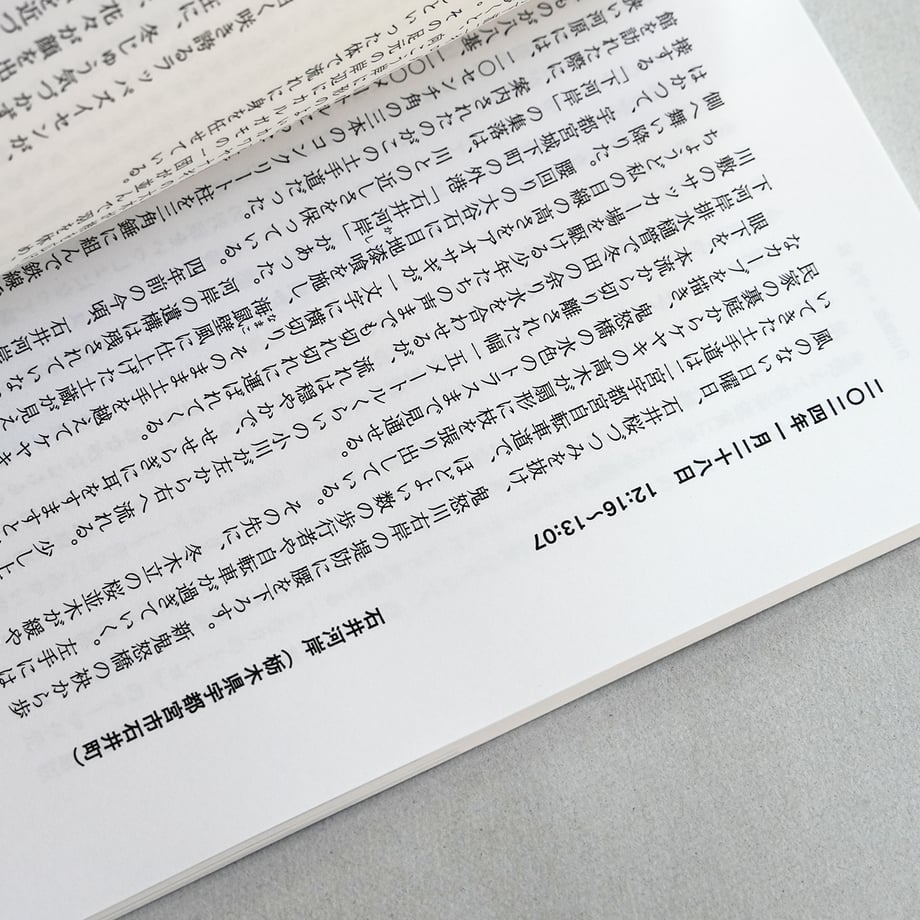 石井河岸（栃木県宇都宮市石井町）
二〇二四年一月二十八日　12:16～13:07
風のない日曜日、石井桜づつみを抜け、鬼怒川右岸の堤防に腰を下ろす。新鬼怒橋の袂から歩
いてきた土手道は一宮宇都宮自転車道で、ほどよい数の歩行者や自転車が過ぎていく。左手には
民家の裏庭からケヤキの高木が扇形に枝を張り出している。その先に、冬木立の桜並木が緩や
なカーブを描き、鬼怒橋の水色のトラスまで見通せる。
眼下を、本流から切り離された幅一五メートルくらいの小川が左から右へ流れる。少し上
下河岸排水樋管で冬田の余り水を合わせるが、流れは穏やかで、せせらぎに耳をすますと
川敷のサッカー場を駆ける少年たちの声までも切れ切れに運ばれてくる。
ちょうど私の目線の高さをアオサギが一文字に横切り、そのまま土手を越えてケヤキ
側へ舞い降りた。腰回りの大谷石に目地漆喰を施し、海鼠壁風に仕上げた土蔵が見え
はかつて、宇都宮城下町の外港「石井河岸」があった。河岸の遺構は残されていな
接する「下河岸」の集落は、川との近しさを保っている。四年前の今頃、石井河岸
館を訪れた際に案内されたのがこの土手道だった。
狭い河原には、二〇センチ角の三本のコンクリート柱を三角錐に組んで鉄線
ものが八八基、二〇〇メ
白く咲き誇るラッパズイセンが、
冬じゅう気づかず
花々が顔を出